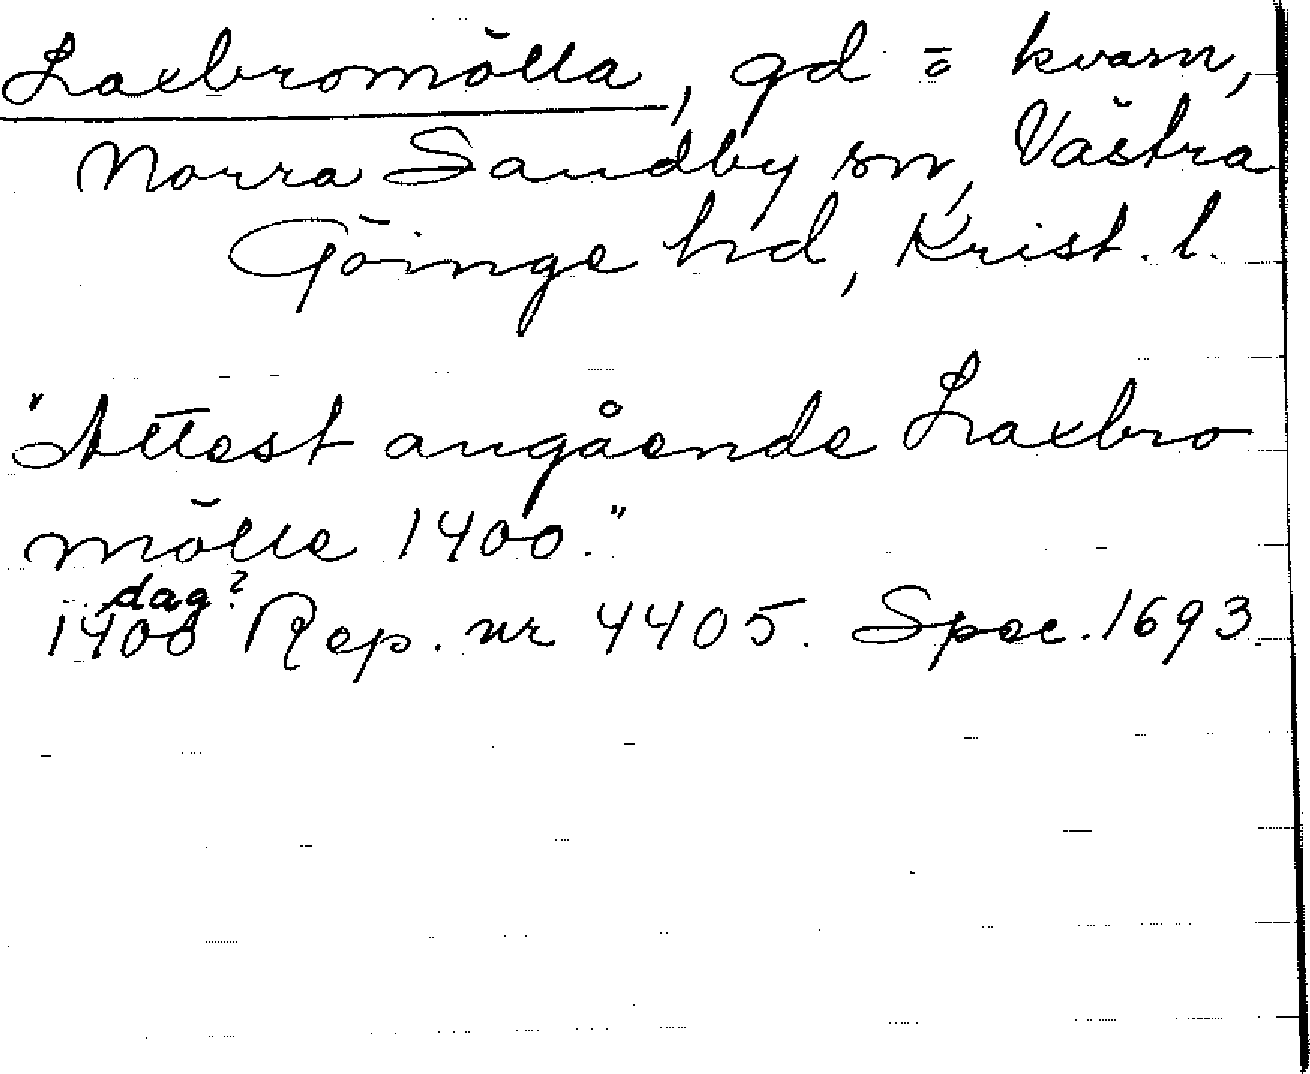 Laxbromölla, gd o kvarn,
Norra Sandby sn, Västra
Göinge hd, Krist. l.
"Attest angående Laxbro
mölle 1400."
dag?
1400 Rep. nr 4405. Spec. 1693.